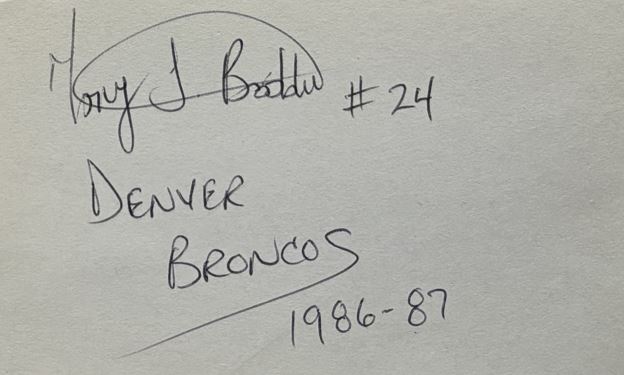 Tony J Boddie #24
DENVER
BRONCOS
1986-87